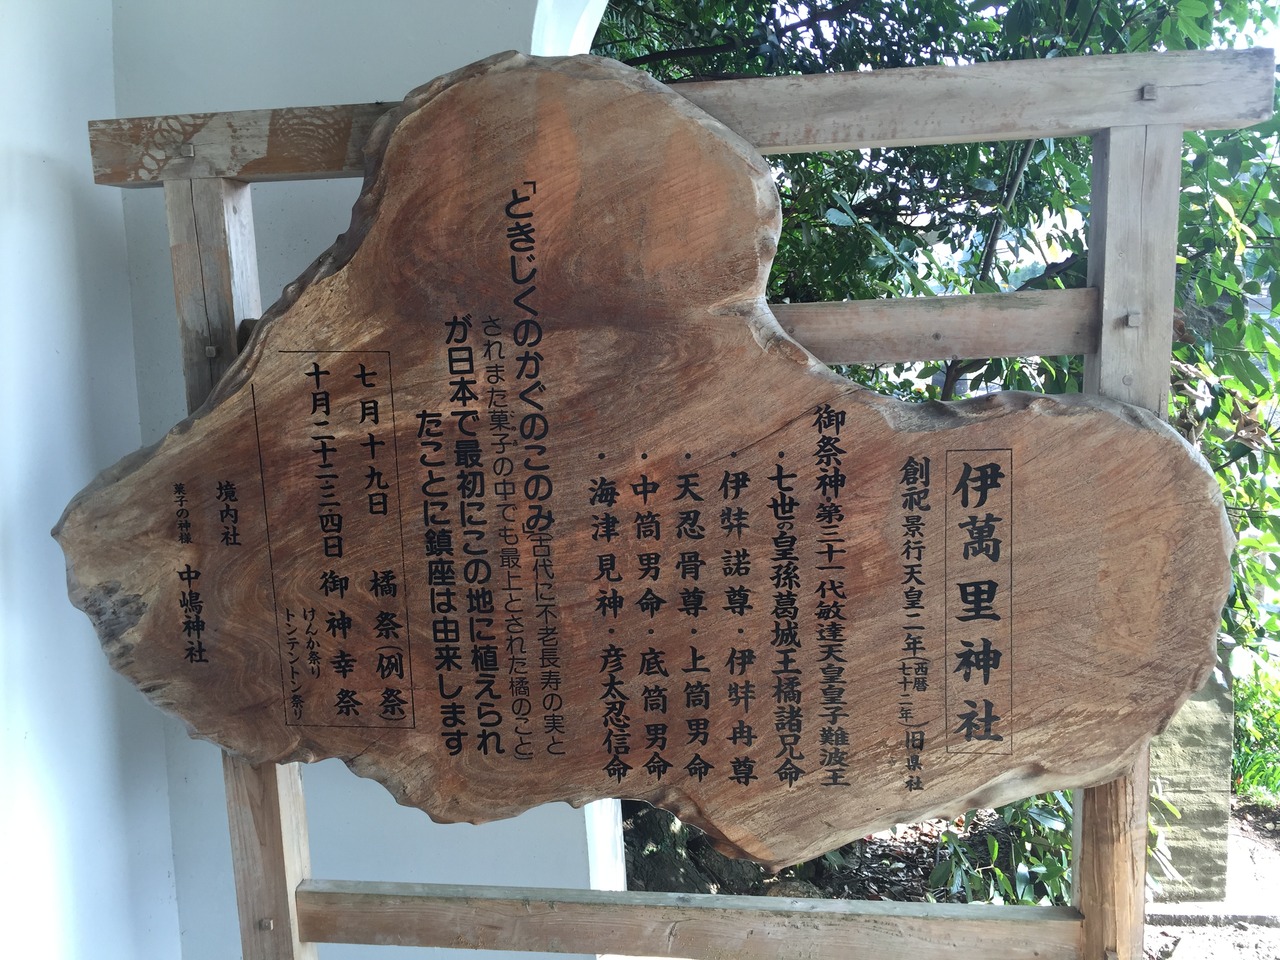 伊萬里神社
創祀景行天皇二年(西暦七十二年)旧県社
御祭神・第三十一代敏達天皇皇子難波王
・七世の皇孫葛城王橘諸兄命
・伊弉諾尊・伊弉冉尊
・天忍骨尊・上筒男命
・中筒男命・底筒男命
・海津見神・彦太忍信命
「ときじくのかぐのこのみ古代に不老長寿の実と
されまた菓子の中でも最上とされた橘のこと
が日本で最初にこの地に植えられ
たことに鎮座は由来します
七月十九日 橘祭(例祭)
十月二十二・三・四日 御神幸祭
けんか祭り
トンテントン祭り
境内社
菓子の神様 中嶋神社